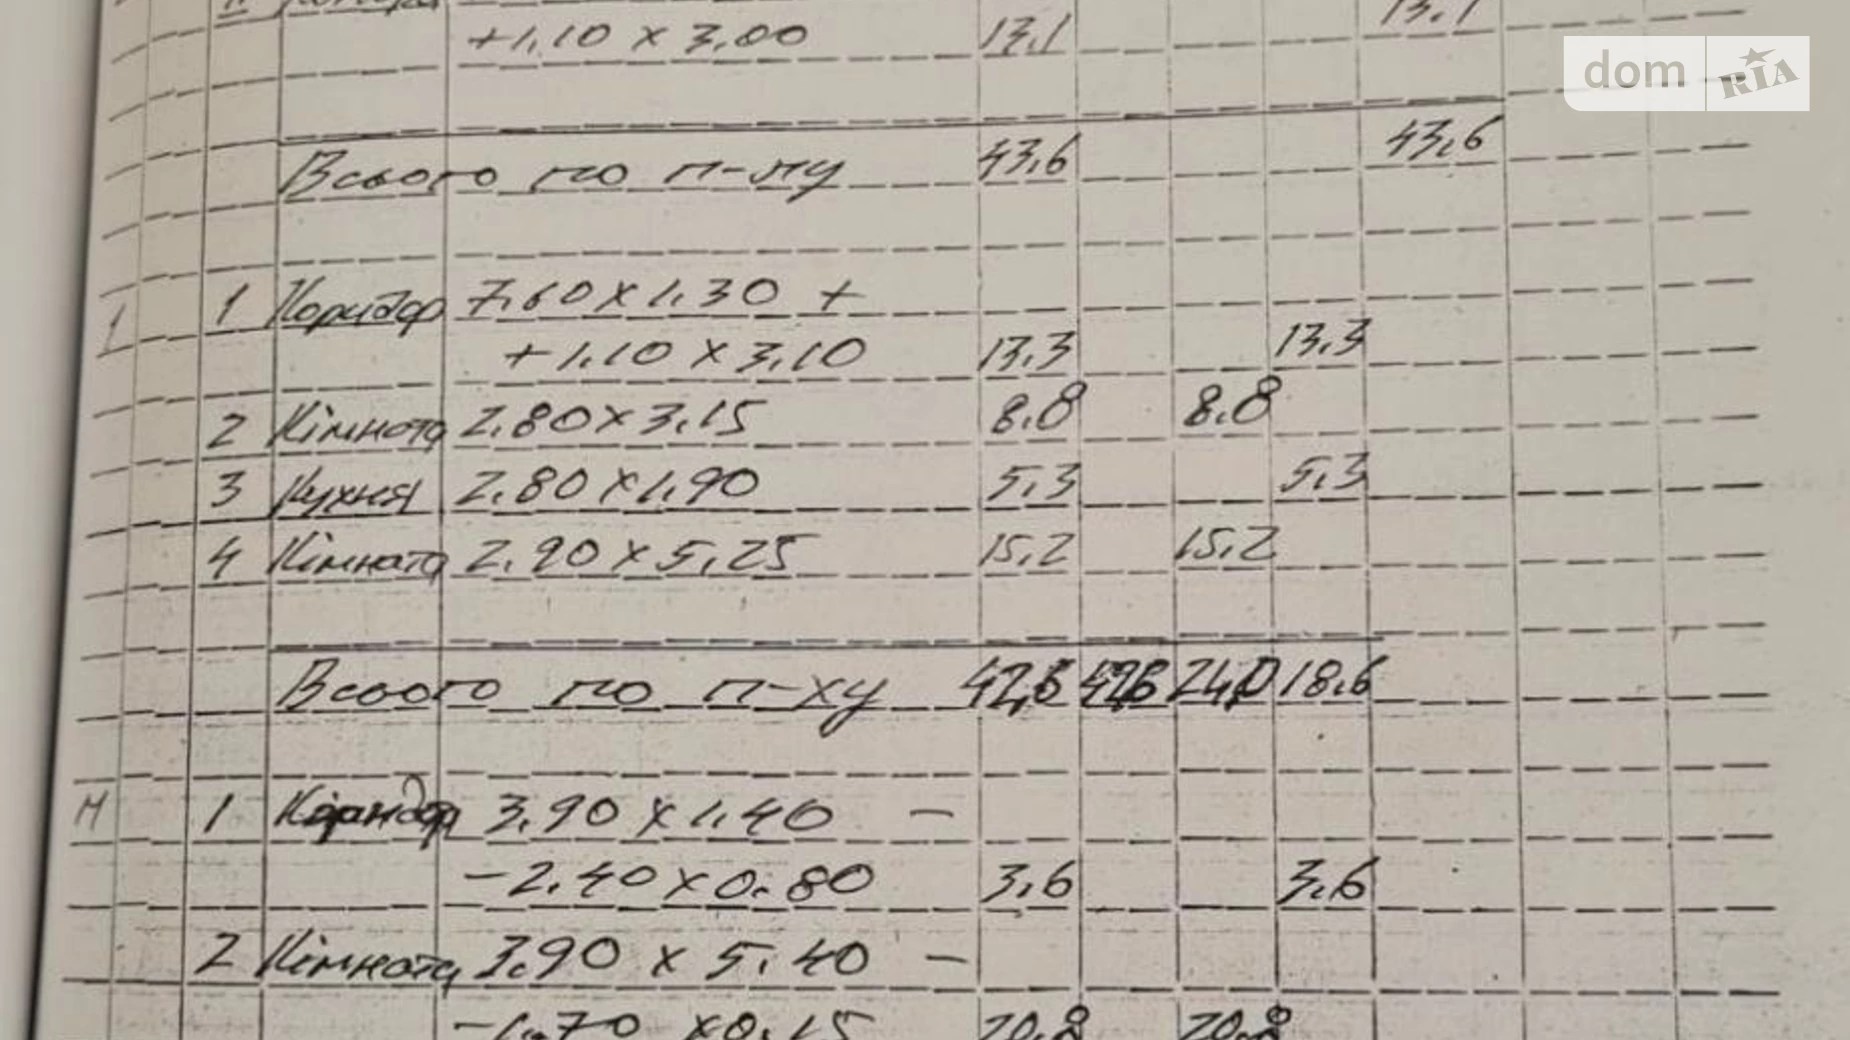 +1,10 x 3,00 13,1 13,1
dom RIA
Всього по п-лу 43,6 43,6
1 Коридор 7,60 x 1,30 +
+1,10 x 3,10 13,3 13,3
2 Кімната 2,80 x 3,15 8,8 8,8
3 Кухня 2,80 x 1,90 5,3 5,3
4 Кімната 2,90 x 5,25 15,2 15,2
Всього по п-ху 42,6 42,6 24,0 18,6
1 Коридор 3,90 x 1,40 –
–2,40 x 0,80 3,6 3,6
2 Кімната 3,90 x 5,40 –
–1,70 x 0,15 20,8 20,8